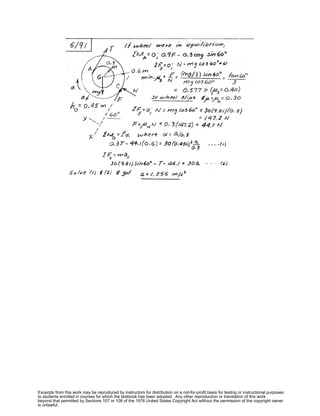 6/91
T
If wheel were in equilibrium,
ΣM_A = 0; 0.9F - 0.3mg sin60°
ΣF_y = 0; N - mg cos60° = 0
0.3
A
0.6m
G
min. μ_s = F/N = (mg/3) sin60° / mg cos60° = tan60°/3
C
N
mg
F
= 0.577 > (μ_s = 0.40)
a
So wheel slips & μ = μ_k = 0.30
k_O = 0.45 m
60°
ΣF_y = 0; N = mg cos60° = 30(9.81)(0.5)
= 147.2 N
F = μ_k N = 0.3(147.2) = 44.1 N
y
x
ΣM_G = Iα where α = a/0.3
0.3T - 44.1(0.6) = 30(0.450)² a/0.3 ---- (1)
ΣF_x = ma_x
30(9.81) sin60° - T - 44.1 = 30a --- (2)
Solve (1) & (2) & get a = 1.256 m/s²
Excerpts from this work may be reproduced by instructors for distribution on a not-for-profit basis for testing or instructional purposes
to students enrolled in courses for which the textbook has been adopted. Any other reproduction or translation of this work
beyond that permitted by Sections 107 or 108 of the 1976 United States Copyright Act without the permission of the copyright owner
is unlawful.